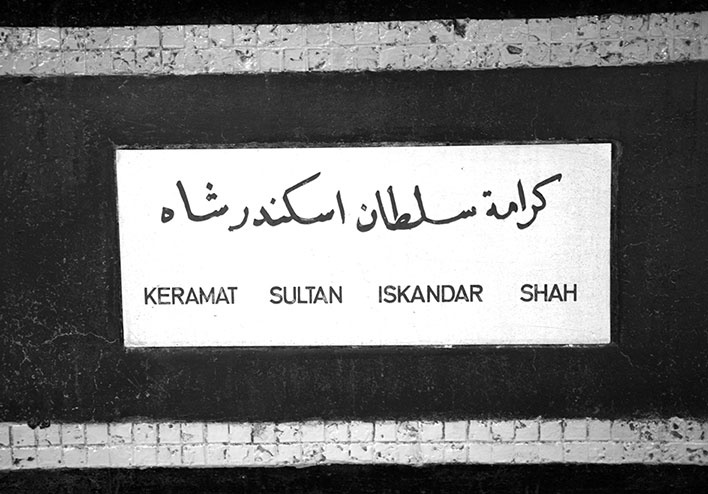 كرامة سلطان اسكندر شاه
KERAMAT SULTAN ISKANDAR SHAH